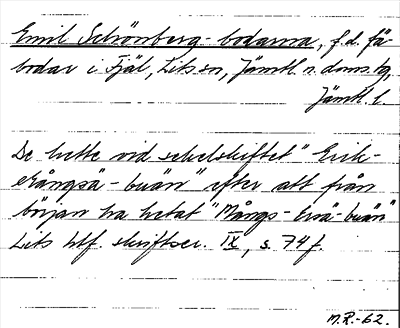 Emil Schönberg-bodarna, f.d. fä-
bodar i Fjäl, Lits sn, Jämtl. n. doms. tg,
Jämtl. l.
De hette vid sekelskiftet "Erik-
efter att från
början ha hetat "Mångs-
Lits htf. skriftser. IX, s. 74 f.
M.R.-62.